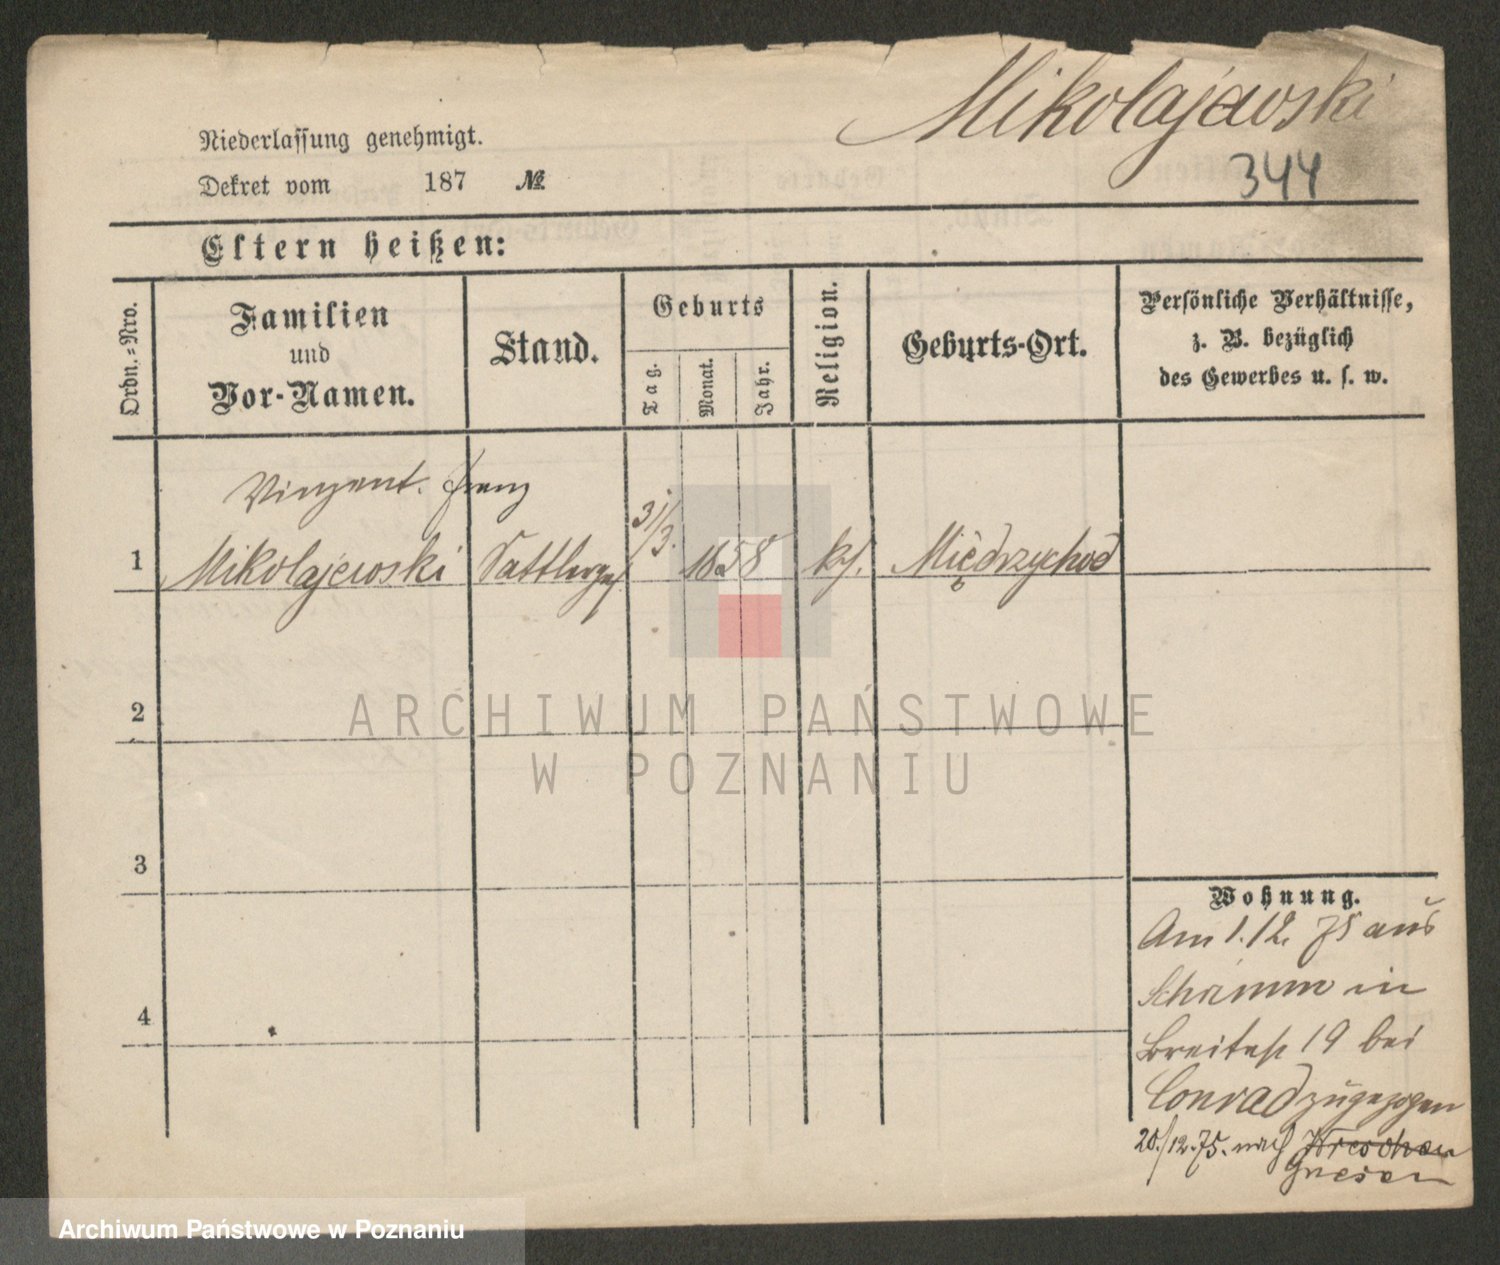 Mikolajewski
344
Niederlassung genehmigt.
Dekret vom 187 №
Eltern heißen:
Ordn.=Nro.
Familien
und
Vor-Namen.
Stand.
Geburts
Tag.
Monat.
Jahr.
Religion.
Geburts-Ort.
Persönliche Verhältnisse,
z. B. bezüglich
des Gewerbes u. s. w.
Vinzent. Franz
1 Mikolajewski Sattlerges 31/3. 1858 Międzychod
2
3
4
Wohnung.
Am 1. 12. 75 aus
Schrimm in
Breitestr 19 bei
Conrad zugezogen
20./12.75. nach Wreschen
Gnesen
ARCHIWUM PAŃSTWOWE
W POZNANIU
Archiwum Państwowe w Poznaniu